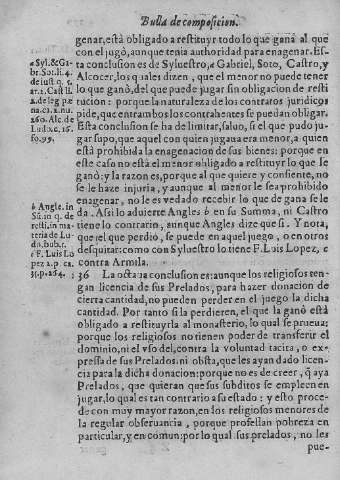 Bulla de composicion.
genar, está obligado a restituyr todo lo que gana al que
con el jugò, aunque tenia autoridad para enagenar. Es-
ta conclusion es de Syluestro, a Gabriel, Soto, Castro, y
Alcocer, los quales dizen, que el menor no puede tener
lo que ganò, del que puede jugar sin obligacion de resti
tucion: porque la naturaleza de los contratos juridicos
pide, que entrambos los contrahentes se puedan obligar.
Esta conclusion se ha de limitar, saluo, si el que pudo ju-
gar supo, que aquel con quien jugaua era menor, a quien
está prohibida la enagenacion de sus bienes: porque en
este caso no está el menor obligado a restituyr lo que se
ganò: y la razon es, porque al que quiere y consiente, no
se le haze injuria, y aunque al menor le sea prohibido
enagenar, no le es vedado recebir lo que de gana se le
da. Assi lo aduierte Angles b en su Summa, ni Castro
tiene lo contrario, aunque Angles dize que si. Y nota,
que el que perdiò, se puede en aquel juego, o en otros
desquitar: como con Syluestro lo tiene F. Luis Lopez, c
contra Armila.
36 La octaua conclusion es: aunque los religiosos ten-
gan licencia de sus Prelados, para hazer donacion de
cierta cantidad, no pueden perder en el juego la dicha
cantidad. Por tanto si la perdieren, el que la ganò está
obligado a restituyrla al monasterio, lo qual se prueua:
porque los religiosos no tienen poder de transferir el
dominio, ni el vso del, contra la voluntad tacita, o ex-
pressa de sus Prelados. ni obsta, que les ayan dado licen-
cia para la dicha donacion: porque no es de creer, q̃ aya
Prelados, que quieran que sus subditos se empleen en
jugar, lo qual es tan contrario a su estado: y esto proce-
de con muy mayor razon, en los religiosos menores de
la regular obseruancia, porque professan pobreza en
particular, y en comun: por lo qual sus prelados, no les
pue-
a Syl. & Ga
br. Sot. li. 4.
de iust. q.
Cast. li.
2. de leg. pœ
Alc. de
Ludo. c. 16.
fo. 99.
b Angle. in
Sũ. in q. de
resti. in ma-
teria de Lu-
do.
c F. Luis Lo
pez 2. p. ca.